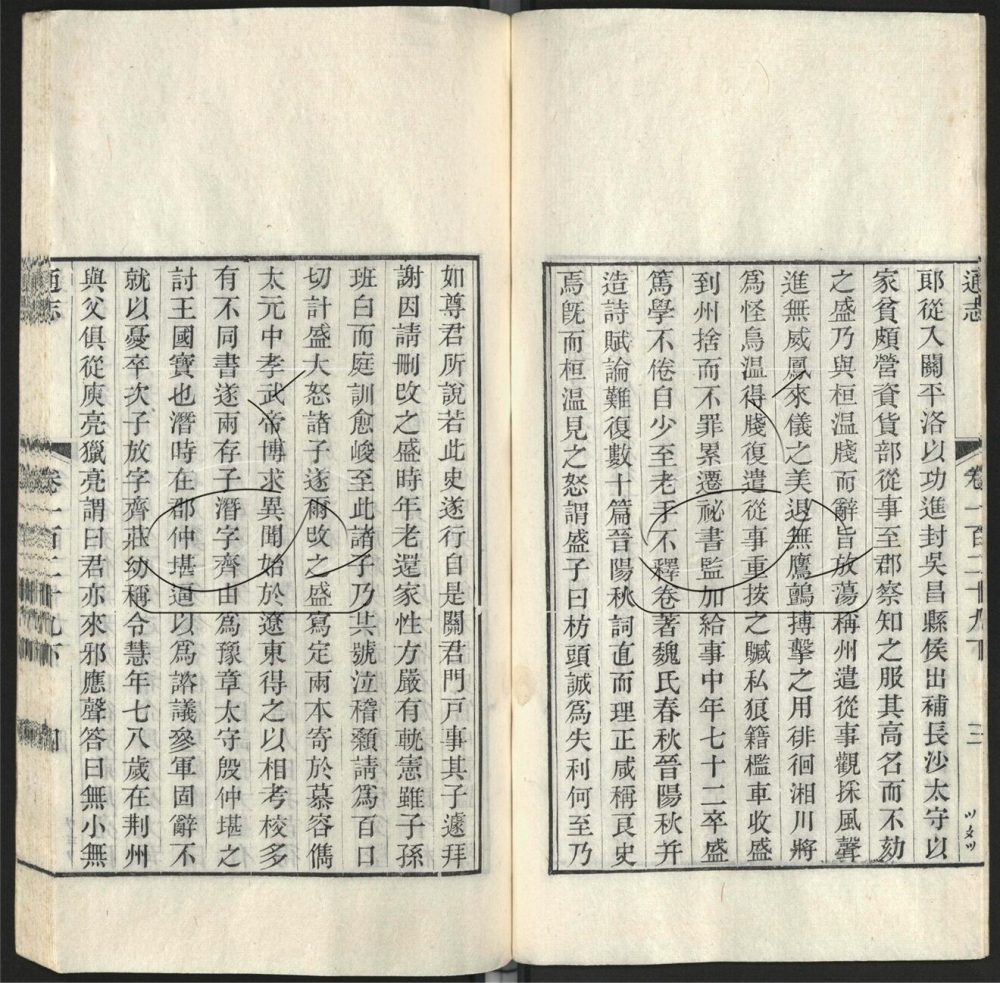 通志
卷一百二十九下
三
郎從入關平洛以功進封吳昌縣侯出補長沙太守以
家貧頗營資貨部從事至郡察知之服其高名而不劾
之盛乃與桓溫牋而辭旨放蕩稱州遣從事觀採風聲
進無威鳳來儀之美退無鷹鸇搏擊之用徘徊湘川將
爲怪鳥溫得牋復遣從事重按之贓私狼籍檻車收盛
到州捨而不罪累遷祕書監加給事中年七十二卒盛
篤學不倦自少至老手不釋卷著魏氏春秋晉陽秋并
造詩賦論難復數十篇晉陽秋詞直而理正咸稱良史
焉旣而桓溫見之怒謂盛子曰枋頭誠爲失利何至乃
如尊君所說若此史遂行自是關君門戸事其子遽拜
謝因請刪改之盛時年老還家性方嚴有軌憲雖子孫
班白而庭訓愈峻至此諸子乃共號泣稽顙請爲百口
切計盛大怒諸子遂爾改之盛寫定兩本寄於慕容儁
太元中孝武帝博求異聞始於遼東得之以相考校多
有不同書遂兩存子潛字齊由爲豫章太守殷仲堪之
討王國寶也潛時在郡仲堪逼以爲諮議參軍固辭不
就以憂卒次子放字齊莊幼稱令慧年七八歲在荆州
與父俱從庾亮獵亮謂曰君亦來邪應聲答曰無小無
通志
卷一百二十九下
四